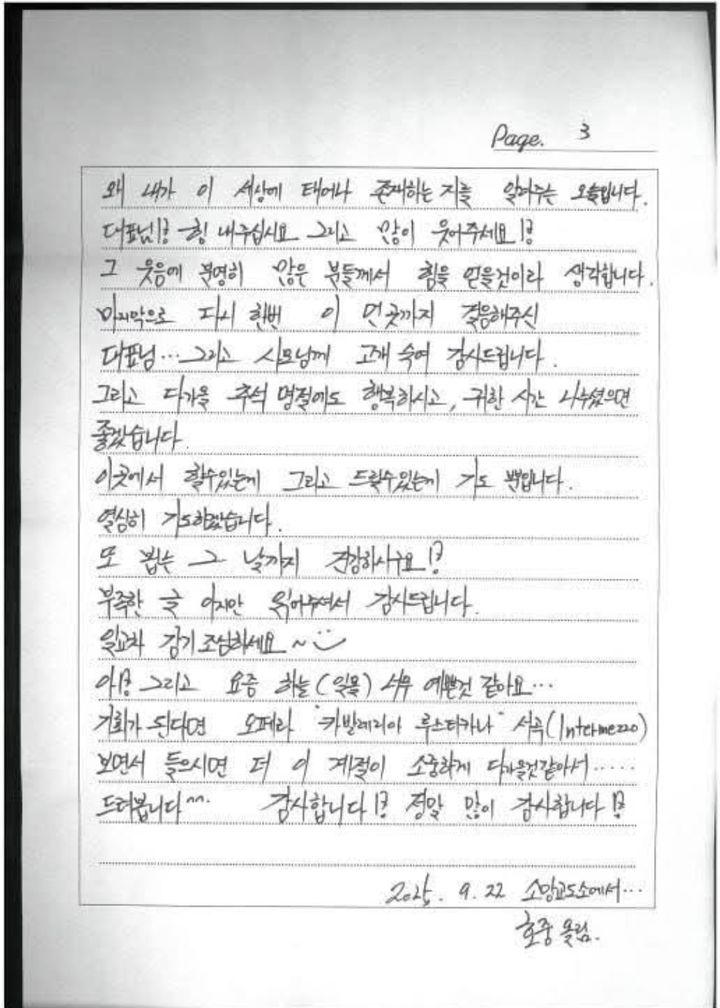 Page. 3
왜 내가 이 세상에 태어나 존재하는 지를 알려주는 오늘입니다.
대표님!? 힘 내주십시요 그리고 많이 웃어주세요!?
그 웃음에 분명히 많은 분들께서 힘을 얻을것이라 생각합니다.
마지막으로 다시 한번 이 먼곳까지 걸음해주신
대표님... 그리고 사모님께 고개 숙여 감사드립니다.
그리고 다가올 추석 명절에도 행복하시고, 귀한 시간 나누셨으면
좋겠습니다.
이곳에서 할수있는게 그리고 드릴수있는게 기도 뿐입니다.
열심히 기도하겠습니다.
또 뵙는 그 날까지 건강하시구요!?
부족한 글 이지만 읽어주셔서 감사드립니다.
일교차 감기 조심하세요~
아!? 그리고 요즘 하늘(일몰) 너무 예쁜것 같아요...
기회가 된다면 오페라 "카발레리아 루스티카나" 서곡(Intermezzo)
보면서 들으시면 더 이 계절이 소중하게 다가올것같아서.....
드려봅니다^^ 감사합니다!? 정말 많이 감사합니다!?
2025. 9. 22 소망교도소에서...
호중 올림.